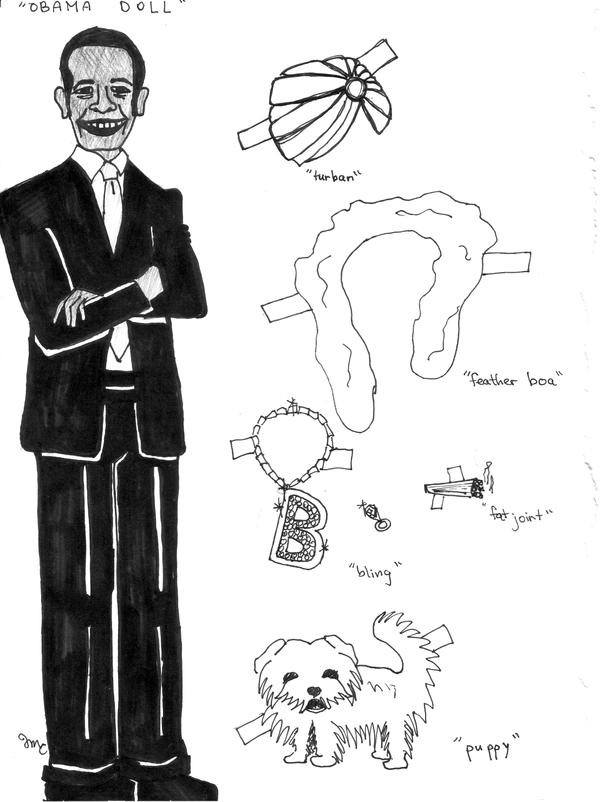 "OBAMA DOLL"
"turban"
"feather boa"
B
"fat joint"
"bling"
"puppy"
JMC